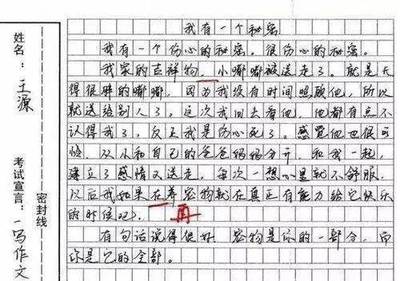 姓名：王源
考试宣言：一写作文
密封线
我有一个秘密
我有一个伤心的秘密。很伤心的秘密。
我家的吉祥物，小嘟嘟被送走了。就是尤
得很胖的嘟嘟，因为我没有时间照顾他，所以
就送给别人了。这次我回去看他，他都有点不
认得我了，反正我是伤心死了，感觉他也很可
怜，从小和自己的爸爸妈妈分开，和我一起，
建立了感情又送走，每次一想心里就不舒服，
以后我如果在养宠物就在真正有能力给它快乐
的时候吧。
再
有句话说得很好，宠物是你的一部分，而
你是它的全部。